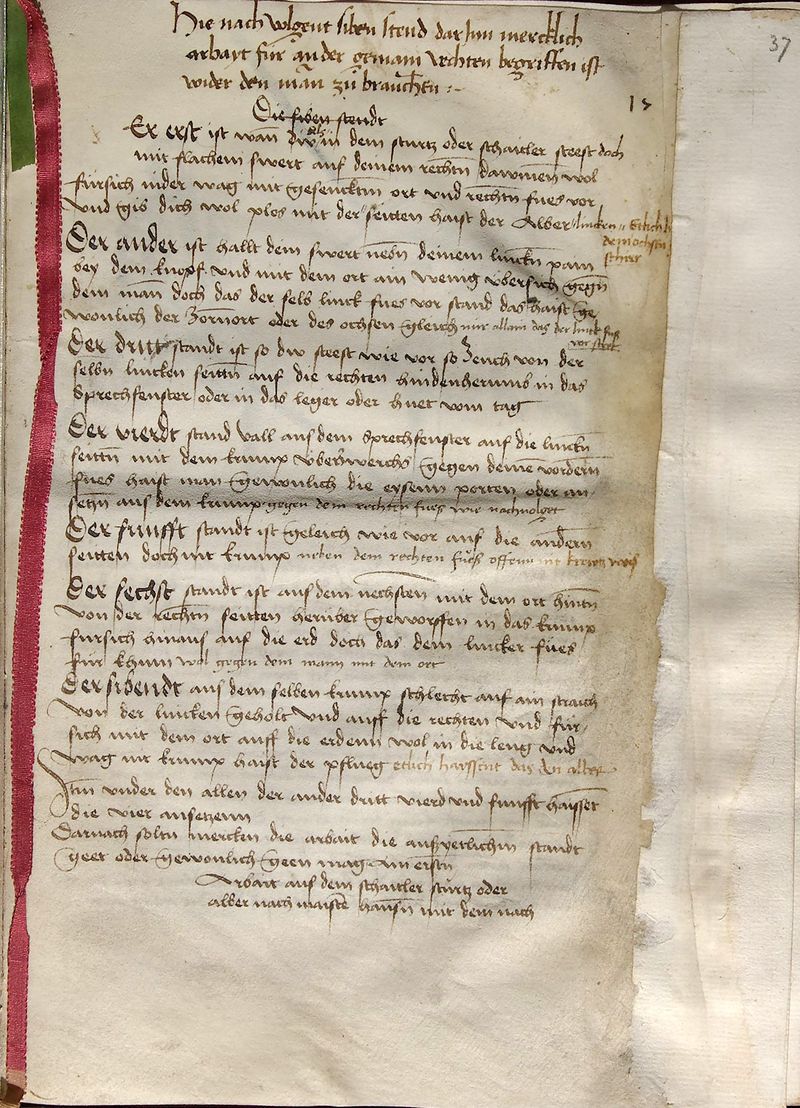 37
Hie nach volgent siben stend darInn mercklich
arbayt für ander gemain vechten begriffen ist
wider den man zů brauchen :-
17
Die siben stendt
Er erst ist wan dw in dem sturtz oder schaitler steest doch
mit flachem swert auf deinem rechtn dawmen wol
fürsich inder wag mit gesencktm ort vnd rechtn fues vor
vnd gib dich wol plos mit der seitten haist der Alber lincken
Der ander ist hallt dem swert nebn deinem linckn pain
bey dem knopf vnd mit dem ort ain wenig vbersich gegn
dem man doch das der selb linck fues vor stand das haist ge
wonlich der Zornort oder des ochsen gleich nur allain das der linck fus
vor steet
Der dritt standt ist so dw steest wie vor so Zeuch von der
selbn lincken seittn auf die rechten hindenherumb in das
Sprechfenster oder in das leger oder huet vom tag
Der vierdt stand vall aus dem Sprechfenster auf die linckn
seittn mit dem krump vberzwerchs gegen deinem vordern
fues haist man gewonlich die eysenn porten oder an
setzn aus dem krump gegen dem rechten fues wie nachvolget
Der funfft standt ist geleich wie vor auf die andern
seitten doch nit krump neben dem rechten fues offenn nit kreutz weis
Der sechst standt ist aus dem nechsten mit dem ort hintn
von der rechtn seitten herüber geworffen in das krump
fürsich hinaus auf die erd doch das dem lincker fues
für khum wol gegen dem mann mit dem ort
Der sibendt aus dem selben krump schlecht auf ain straich
von der lincken geholt vnd auff die rechten vnd für
sich mit dem ort auff die erdenn wol in die leng vnd
wag nit krump haist der pflueg etlich haissent das den alber
Itm vnder den allen der ander dritt vierd vnd funfft haisset
die vier ansetzenn
Darnach soltu mercken die arbait die aus yetlichem standt
geet oder gewonlich geen mag Am erstn
Arbait aus dem schaitler sturtz oder
alber nach maister hansn mit dem nach